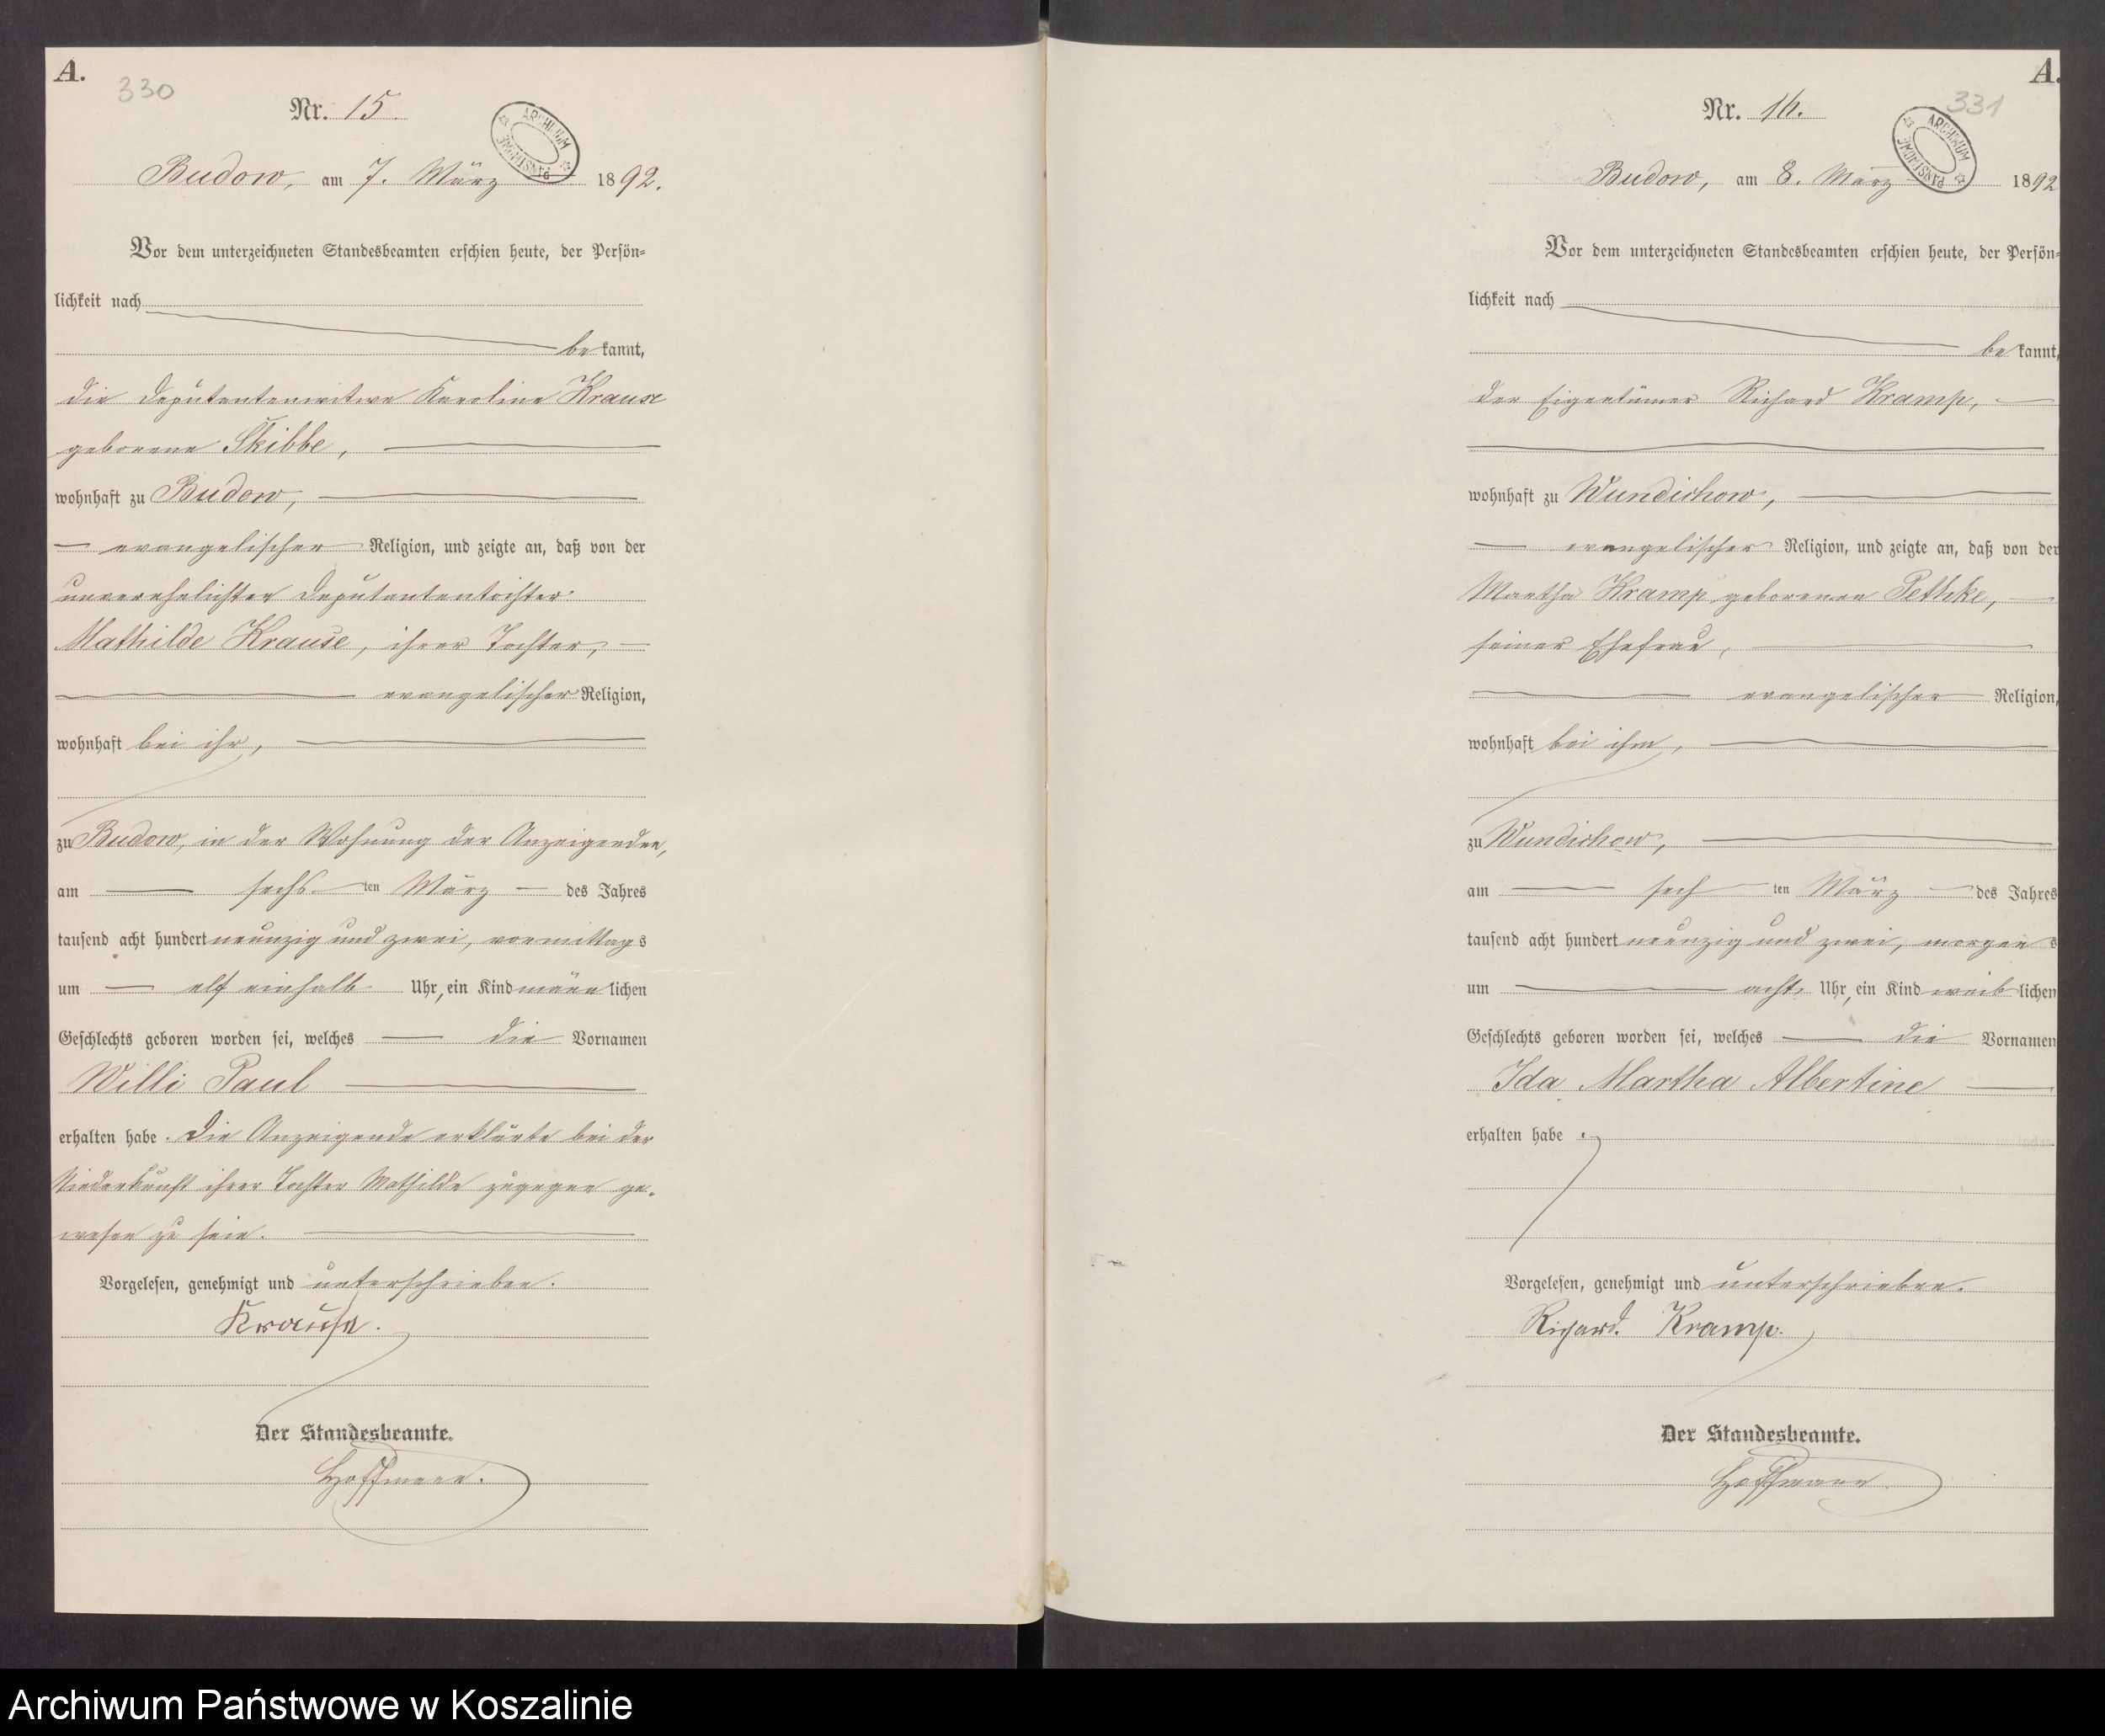 A.
330
Nr. 15.
ARCHIWUM PAŃSTWOWE
Budow, am 7. März 1892.
Vor dem unterzeichneten Standesbeamten erschien heute, der Persön-
lichkeit nach
be kannt,
die Deputantenwitwe Karoline Krause
geborene Skibbe,
wohnhaft zu Budow,
evangelischer Religion, und zeigte an, daß von der
unverehelichten Deputantentochter
Mathilde Krause, ihrer Tochter,
evangelischer Religion,
wohnhaft bei ihr,
zu Budow, in der Wohnung der Anzeigenden,
am sechs ten März des Jahres
tausend acht hundert neunzig und zwei, vormittags
um elf einhalb Uhr, ein Kind männ lichen
Geschlechts geboren worden sei, welches die Vornamen
Willi Paul
erhalten habe. Die Anzeigende erklärte bei der
Niederkunft ihrer Tochter Mathilde zugegen ge-
wesen zu sein.
Vorgelesen, genehmigt und unterschrieben.
Krause.
Der Standesbeamte.
Hoffmann.
A.
331
Nr. 16.
ARCHIWUM PAŃSTWOWE
Budow, am 8. März 1892
Vor dem unterzeichneten Standesbeamten erschien heute, der Persön-
lichkeit nach
be kannt,
der Eigentümer Richard Kramp,
wohnhaft zu Wundichow,
evangelischer Religion, und zeigte an, daß von der
Martha Kramp geborenen Pethke,
seiner Ehefrau,
evangelischer Religion,
wohnhaft bei ihm,
zu Wundichow,
am sech ten März des Jahres
tausend acht hundert neunzig und zwei, morgens
um acht Uhr, ein Kind weib lichen
Geschlechts geboren worden sei, welches die Vornamen
Ida Martha Albertine
erhalten habe.
Vorgelesen, genehmigt und unterschrieben.
Richard. Kramp.
Der Standesbeamte.
Hoffmann.
Archiwum Państwowe w Koszalinie